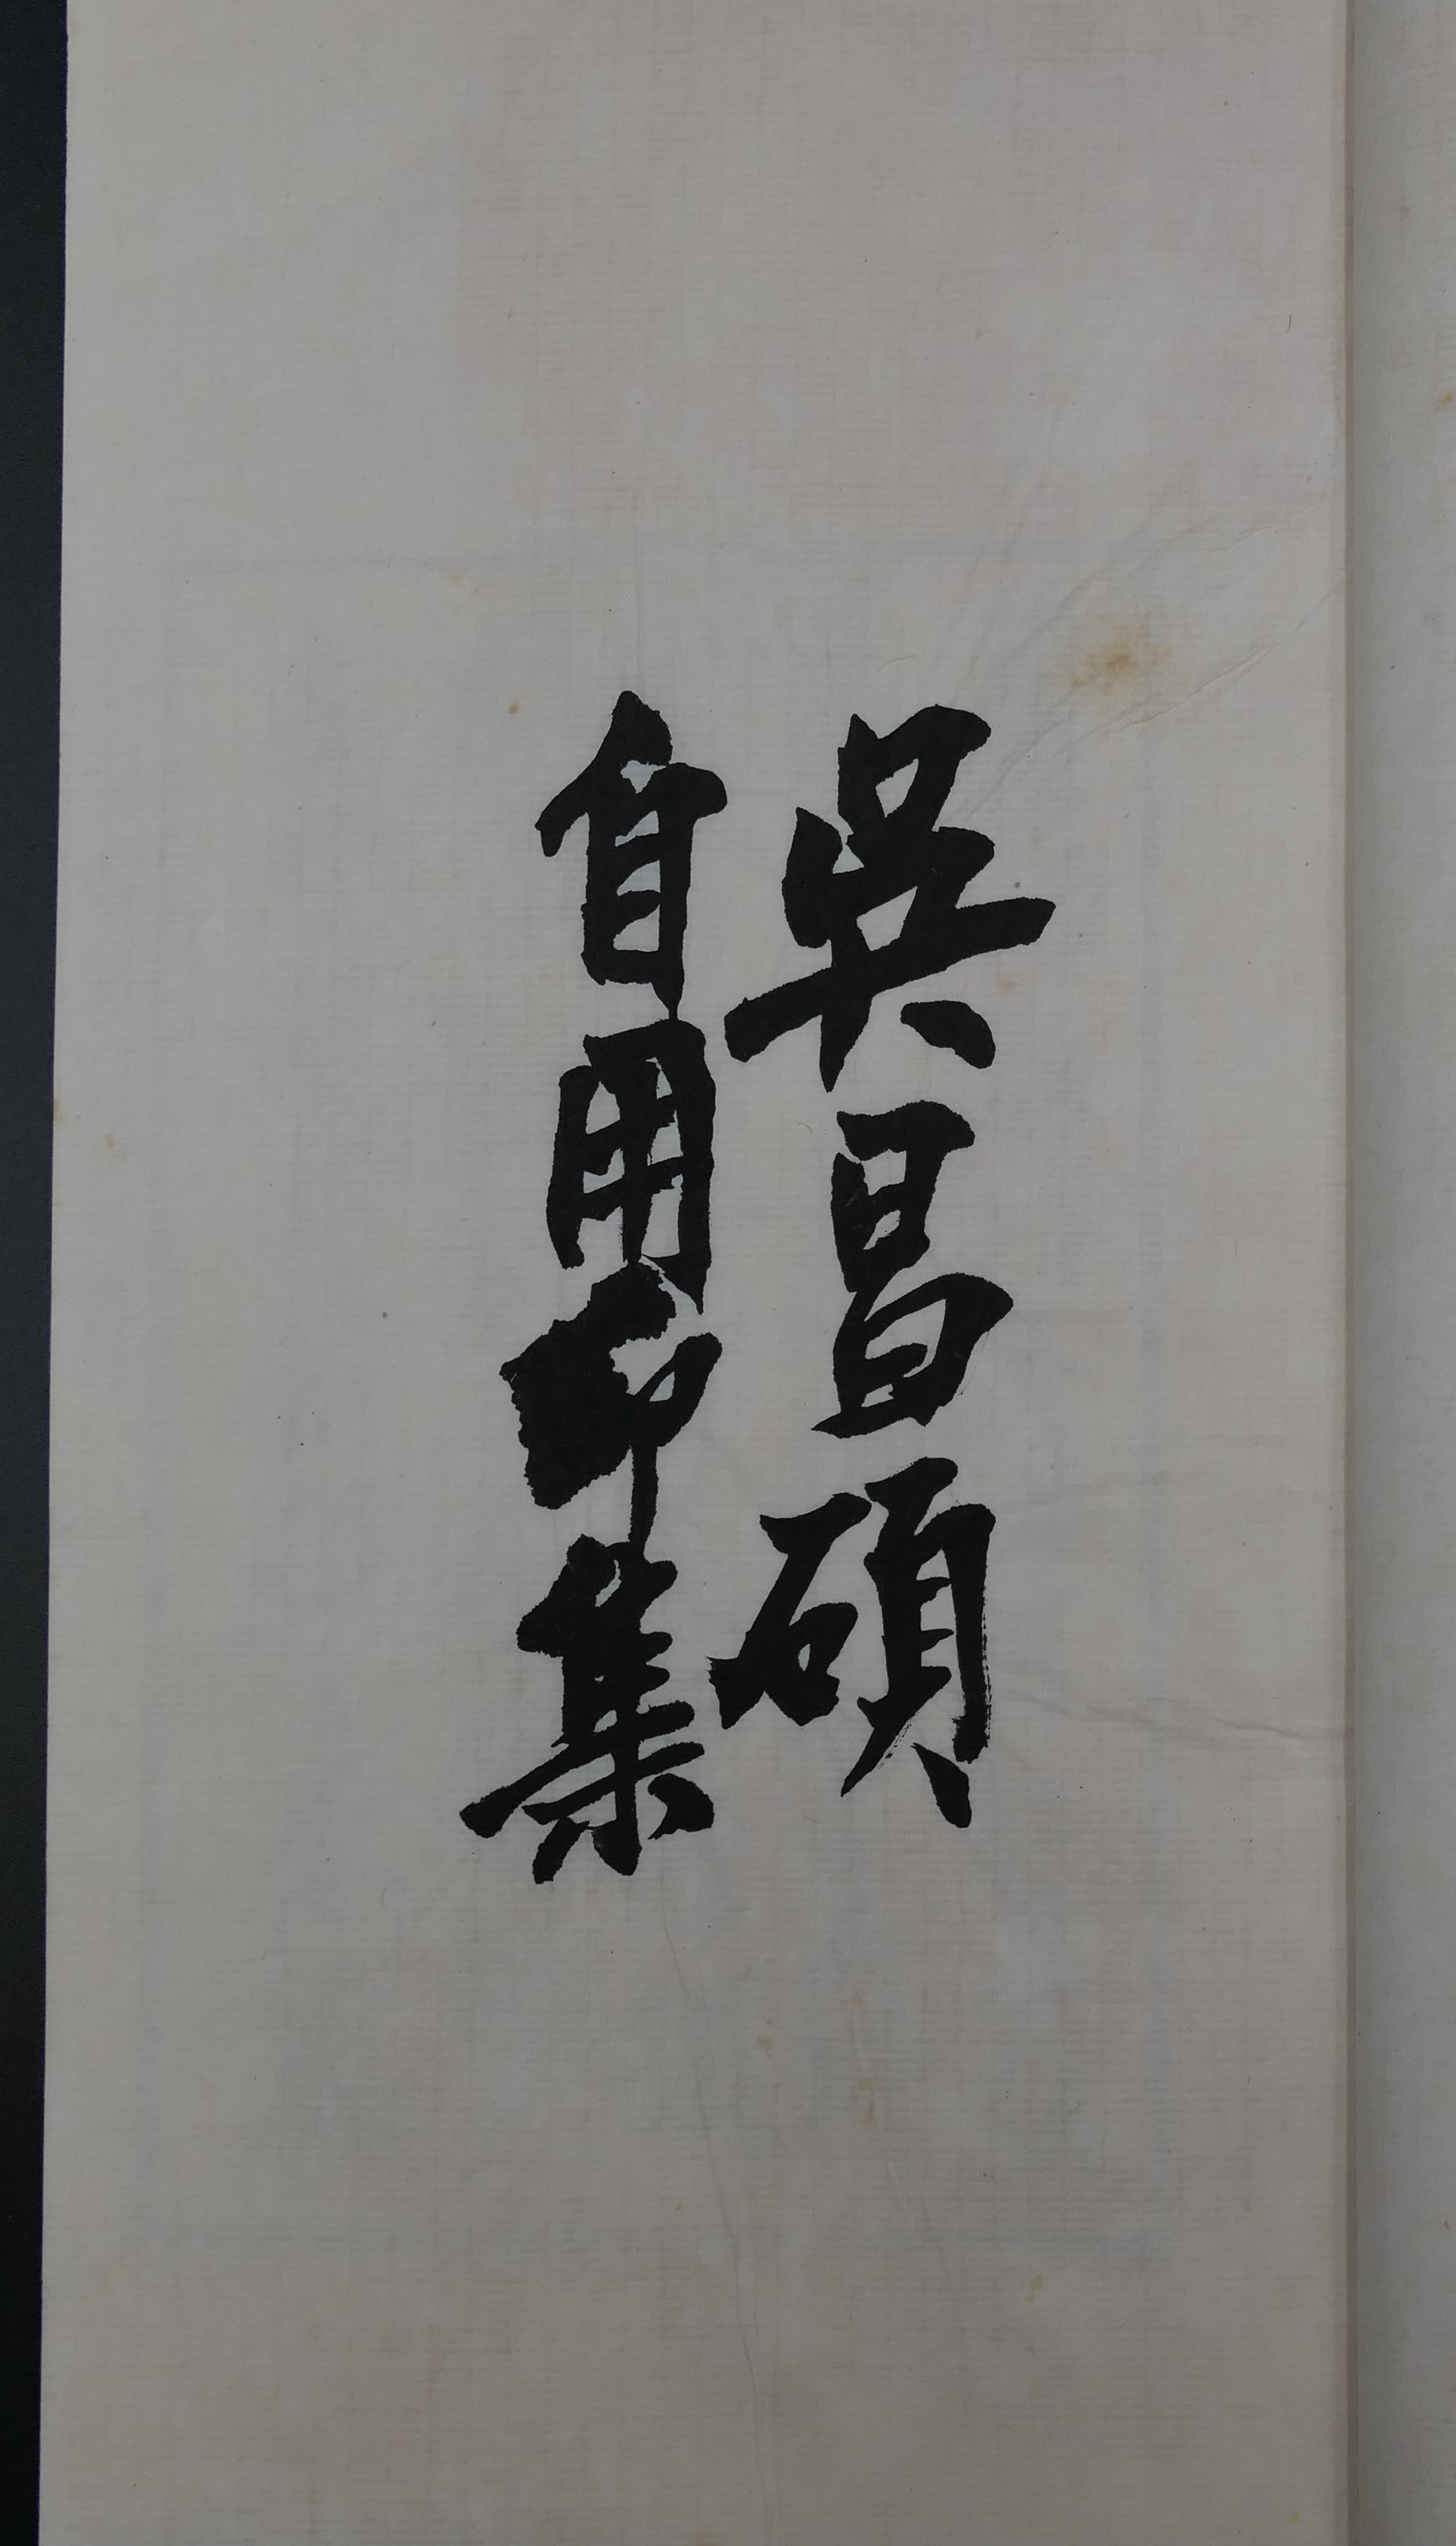 吳昌碩
自用印集